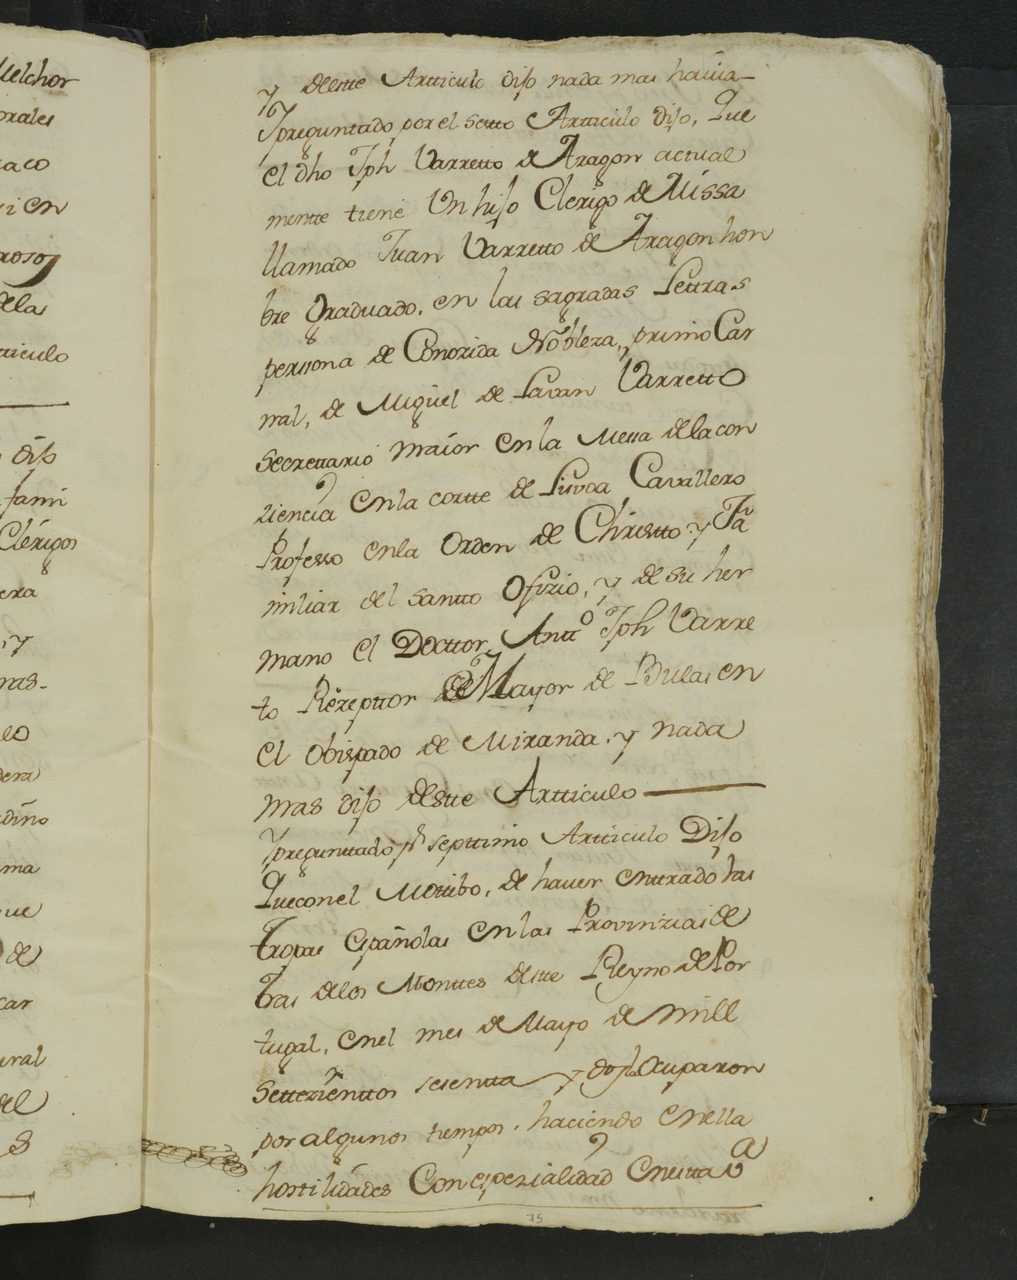 Melchor
orales
aco
i en
roso
dela
rticulo
dijo
fami
Clérigos
era
, y
ras-
dera
dino
ma
ue
de
car
ural
del
s
y deeste Articulo dijo nada mas havia
Ypreguntado por el sexto Articulo dijo, Que
el dho Jph Varretto de Aragon actual
mente tiene Un hijo Clerigo de Missa
llamado Juan Varretto de Aragon hon
bre Graduado, en las sagradas Letras
persona de Conozida Nobleza, primo Car
nal, de Miguel de Lavan Varretto
Secrettario maior en la Messa dela con
ziencia en la cortte de Lisvoa Cavallero
Professo enla Orden de Christto y Fa
miliar del santto Ofizio, y de su her
mano el Docttor Antto Jph Varre
to Rezepttor Mayor de Bulas en
el obispado de Miranda, y nada
mas dijo deste Artticulo
Ypregunttado pr septtimo Artticulo Dijo
Que con el Mottibo, de haver enttrado las
tropas españolas en las Provinzias de
tras delos Monttes deste Reyno de Por
tugal, enel mes de Mayo de mill
Settezienttos sesentta y dos, la Ocuparon
por algunos tiempos, haciendo en ella
hostilidades Con espezialidad en estta
75